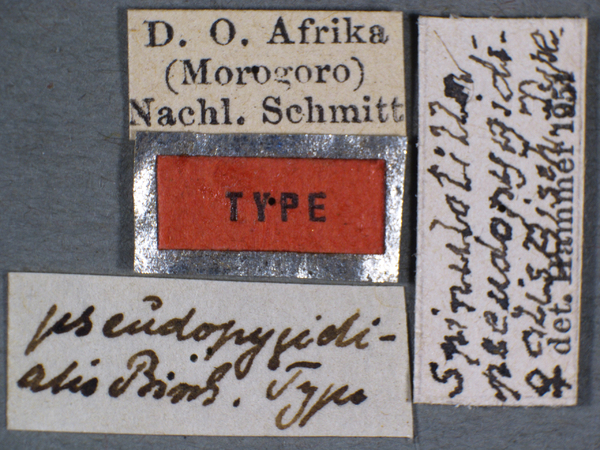 D. O. Afrika
(Morogoro)
Nachl. Schmitt
TYPE
pseudopygidi-
alis Bisch. Type
Spinulotilla
pseudopygidi-
♀ alis Bisch Type
det. Hammer 195